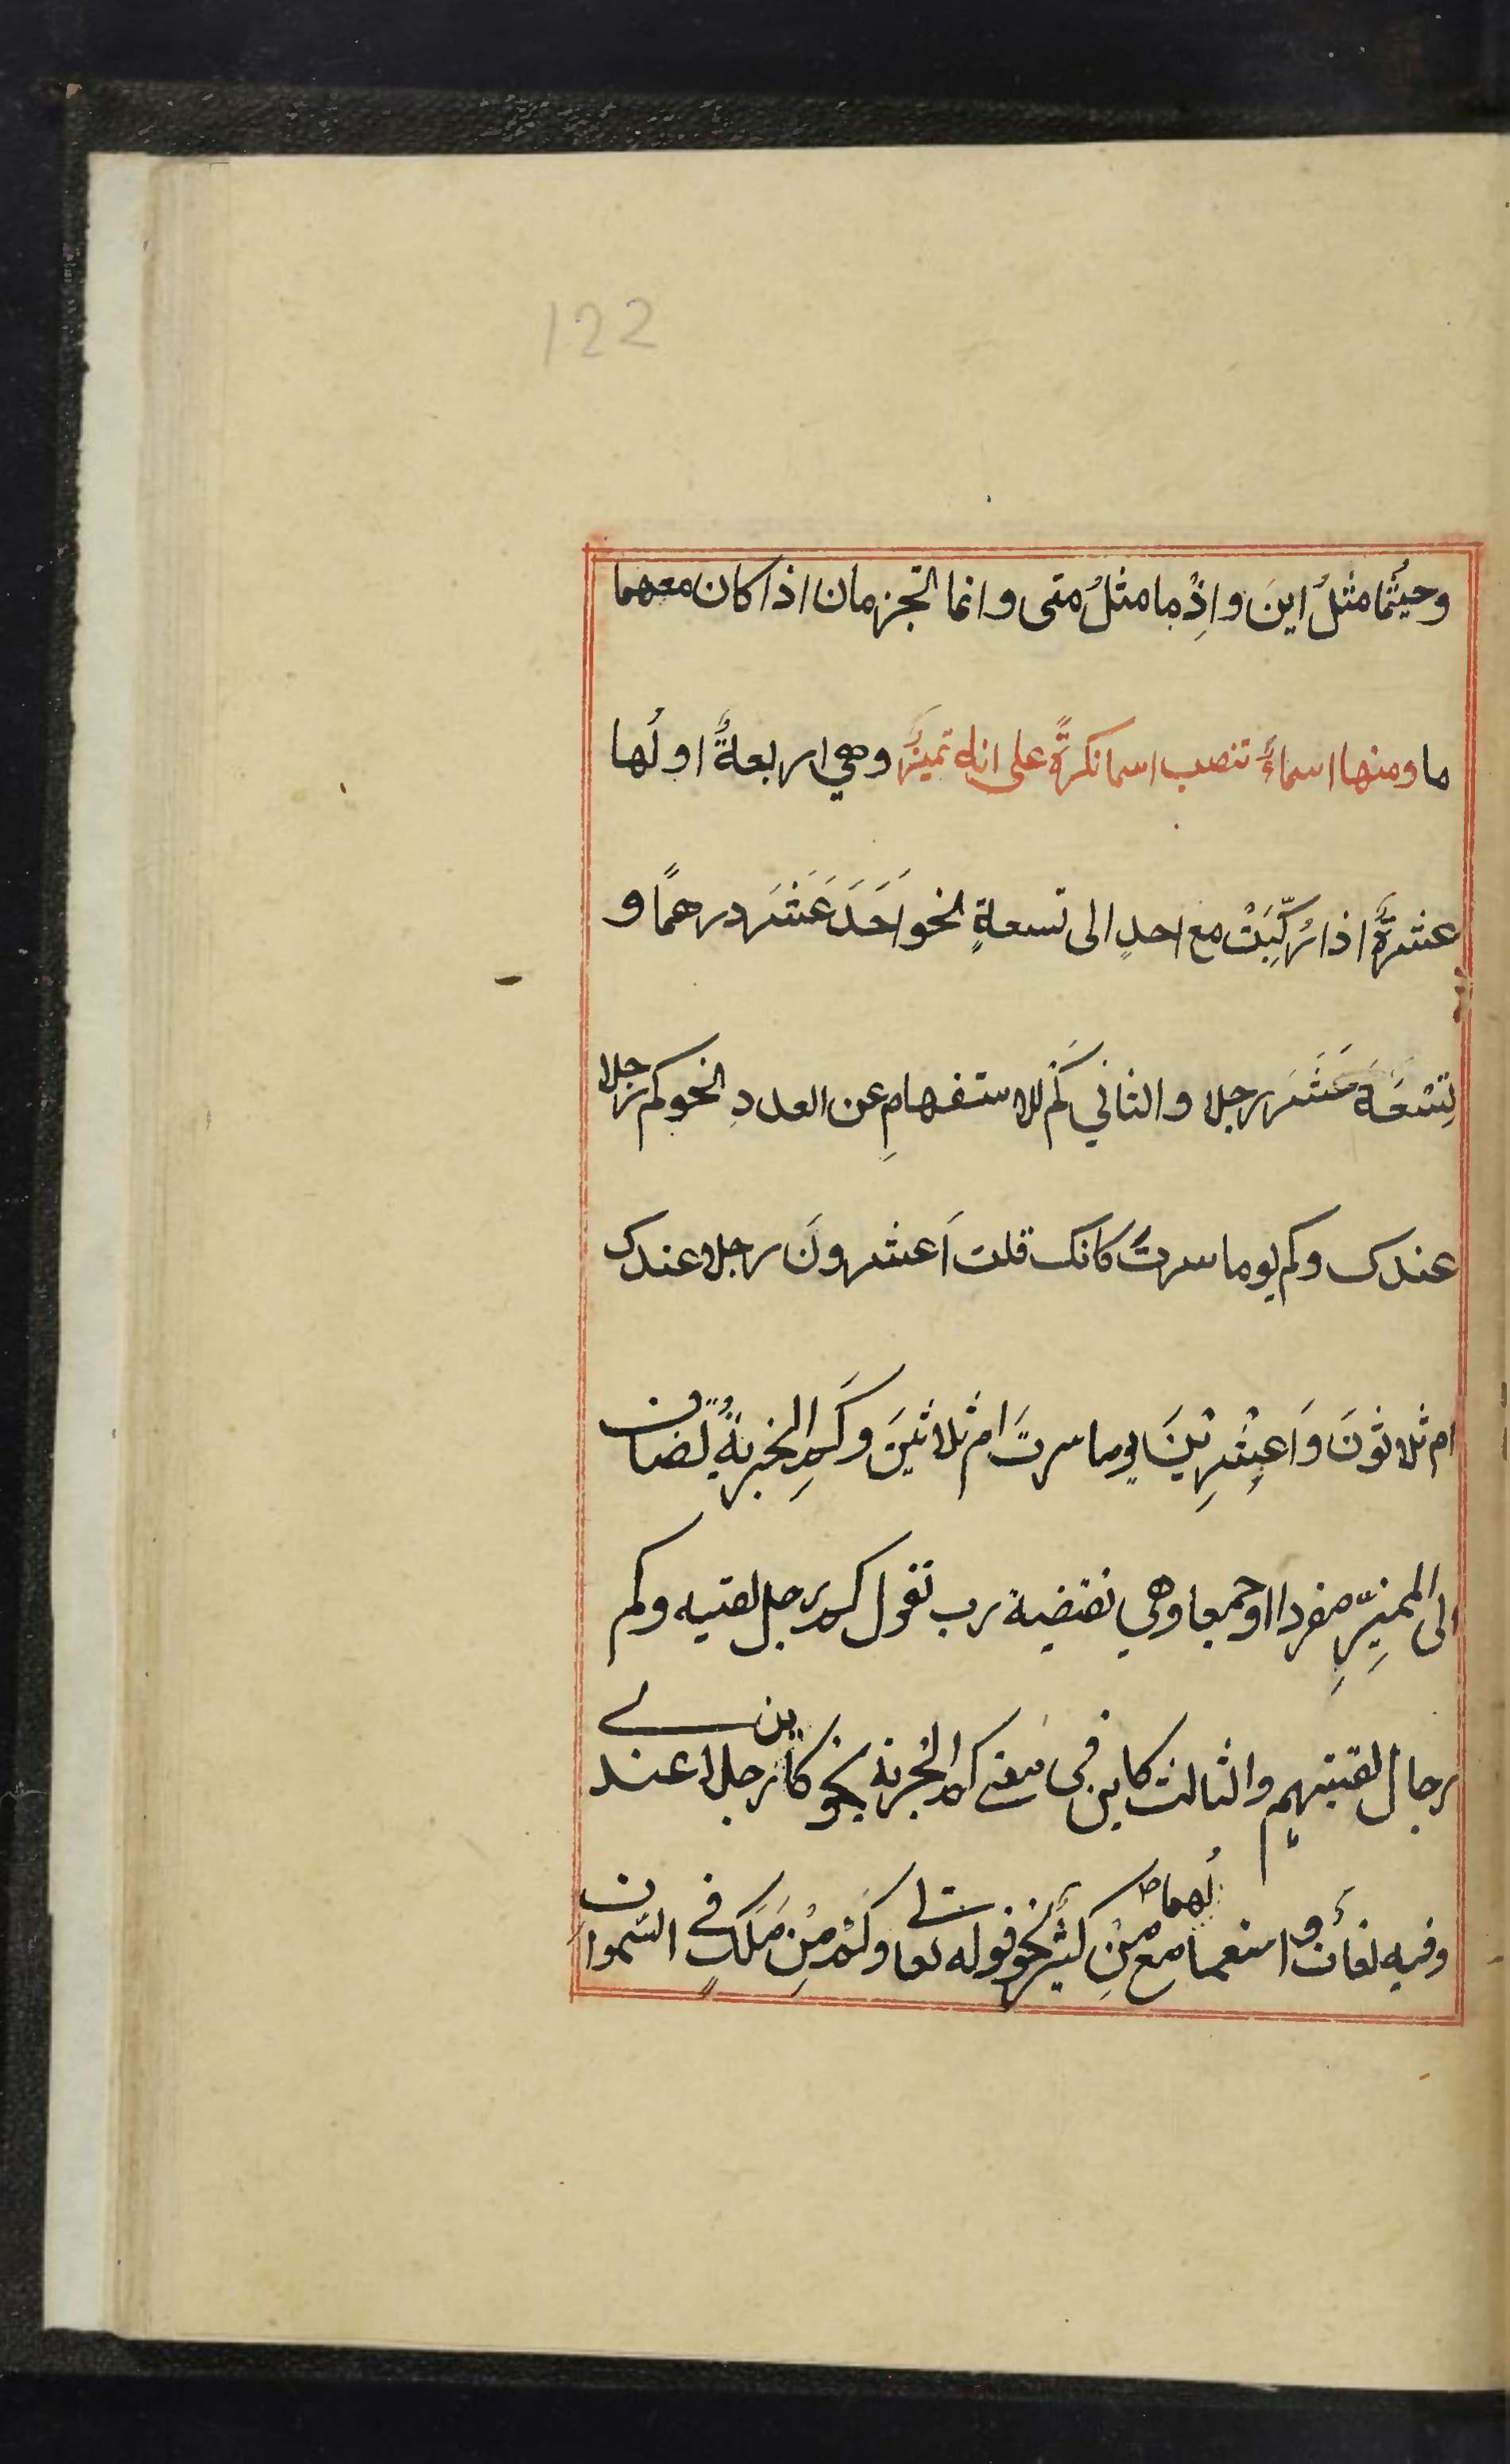 122
وحيثُما مثلُ اينَ واِذْما مثلُ متى وانما تجزمان اذا كان معهما
ما ومنها اسماءٌ تنصب اسما نكرةً على انه تميزٌ وهي اربعةٌ اولُها
عشرةٌ اذا رُكِّبَتْ مع احدٍ الى تسعةٍ نحو اَحَدَ عَشَرَ درهمًا و
تِسْعَةَ عَشَرَ رجلا والثاني كَمْ للاستفهامِ عن العددِ نحو كم رجلا
عندك وكم يوما سرتَ كانك قلت اَعشرونَ رجلا عندك
ام ثلاثونَ وَاَعِشْرِيْنَ يوما سرتَ ام ثلاثينَ وكَمِ الخبريةُ تُضاف
الى المميِّزِ مفردا او جمعا وهي نقيضة رب تقول كم رجل لقيته وكم
رجال لقيتهم والثالث كاين في معنى كم الخبرية نحو كاين رجلا عندي
وفيه لغاتٌ واستعمالُهما مع مِنْ كثيرٌ نحو قوله تعالى وكَمْ مِنْ مَلَكٍ في السّموات